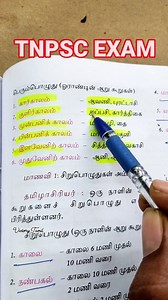 TNPSC EXAM
பெரும்பொழுது (ஓராண்டின் ஆறு கூறுகள்)
1. கார்காலம் - ஆவணி, புரட்டாசி
குளிர்காலம் - ஐப்பசி, கார்த்திகை
முன்பனிக் காலம் - மார்கழி, தை
பின்பனிக் காலம்
இளவேனிற் காலம் - சித்திரை,
முதுவேனிற் காலம் - ஆனி,
மாணவி 1: சிறுபொழுதுகள்
தமிழாசிரியர் : ஒரு நாளின்
கூறுகளைச் சிறுபொழுது
பிரித்துள்ளனர்.
சிறுபொழுது (ஒரு நாளின் ஆறு கூறுகள்)
1. காலை - காலை 6 மணி முதல்
10 மணி வரை
2. நண்பகல் - காலை 10 மணி முதல்
2 மணி வரை